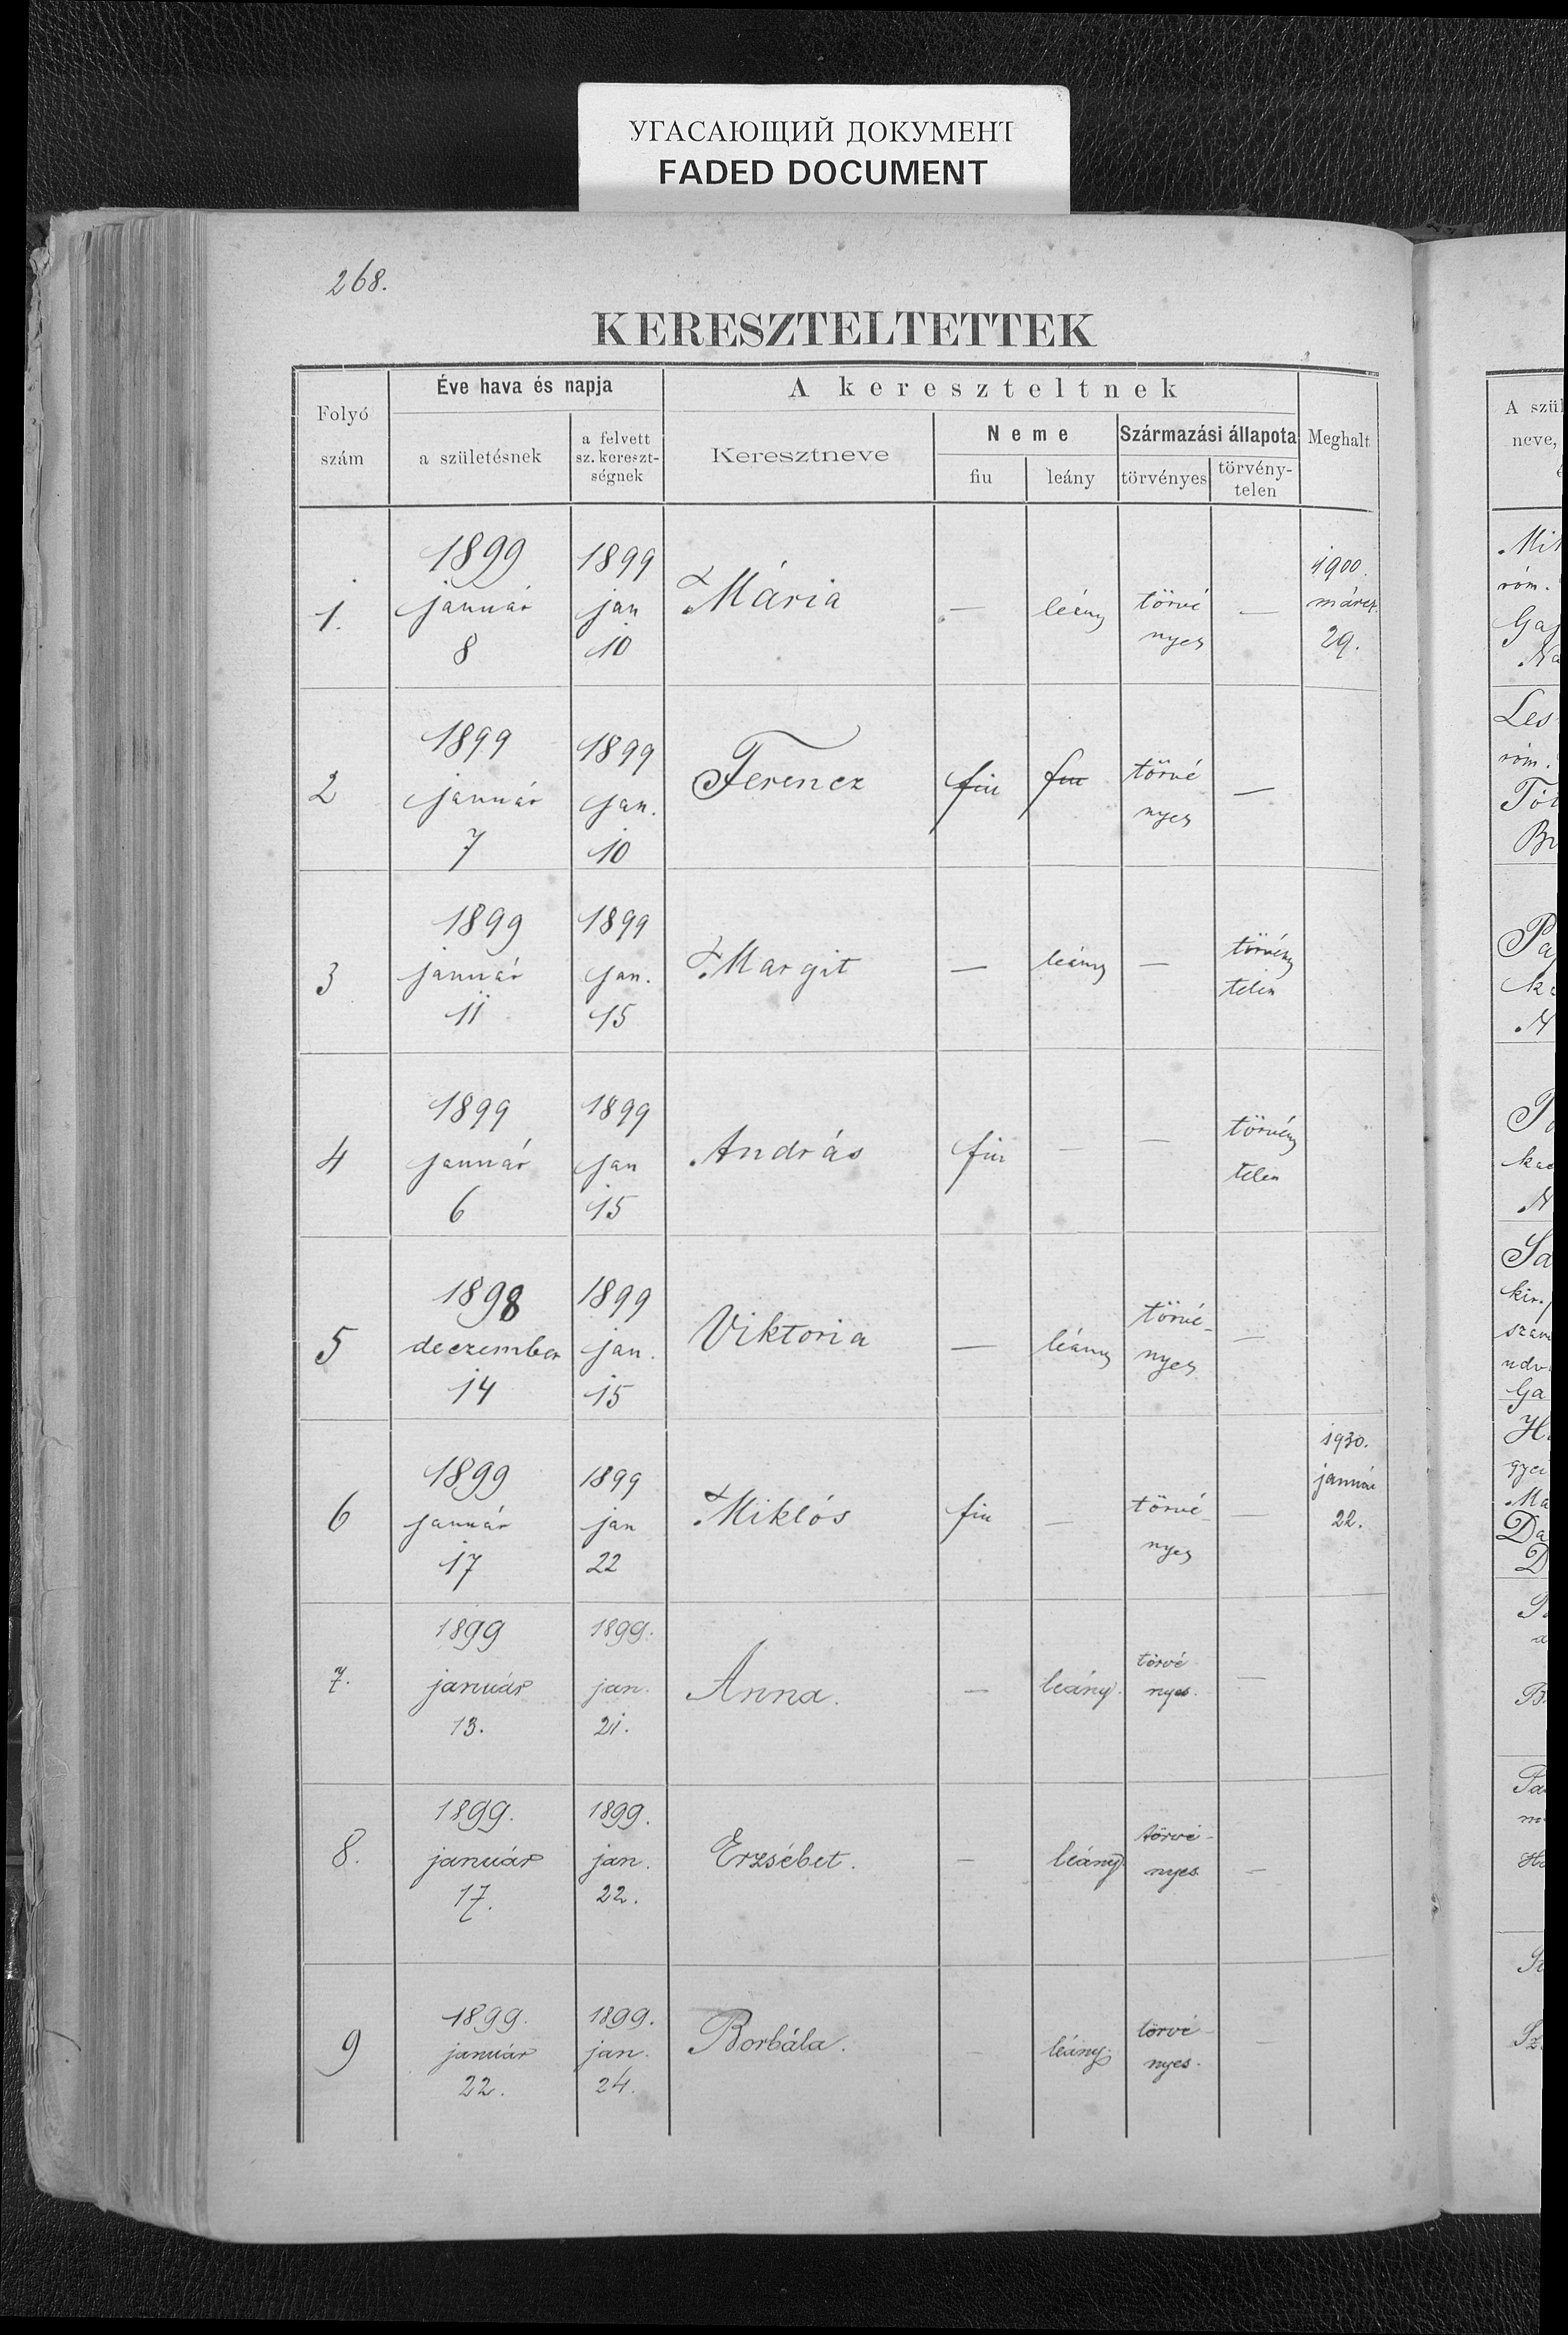 УГАСАЮЩИЙ ДОКУМЕНТ
FADED DOCUMENT
268.
KERESZTELTETTEK
Folyó szám
Éve hava és napja
a születésnek
a felvett sz. kereszt-ségnek
A kereszteltnek
Keresztneve
Neme
fiu
leány
Származási állapota
törvényes
törvény-telen
Meghalt
A szül
neve,
1. 1899 január 8 1899 jan 10 Mária — leány törvé nyes — 1900. márcz. 29.
2 1899 január 7 1899 jan. 10 Ferencz fiu fiu törvé nyes —
3 1899 január 11 1899 jan. 15 Margit — leány — törvény telen
4 1899 január 6 1899 jan 15 András fiu — — törvény telen
5 1898 deczember 14 1899 jan. 15 Viktoria — leány törvé- nyes —
6 1899 január 17 1899 jan 22 Miklós fiu — törvé- nyes — 1930. január 22.
7. 1899 január 13. 1899. jan. 21. Anna. — leány. törvé nyes. —
8. 1899. január 17. 1899. jan. 22. Erzsébet. — leány törvé- nyes —
9 1899. január 22. 1899. jan. 24. Borbála. — leány. törvé- nyes. —